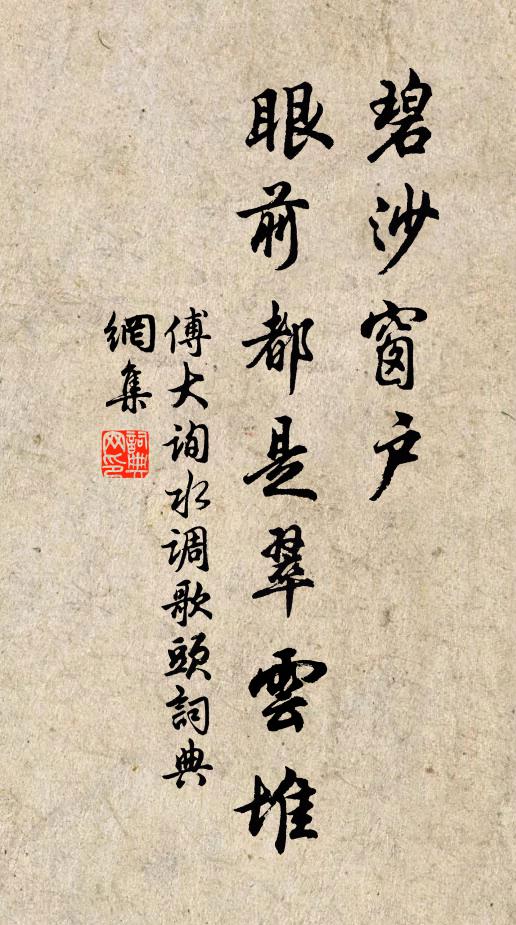 碧沙窗户
眼前都是翠雲堆
傅大询水调歌頭詞典
網集
詞典
网印